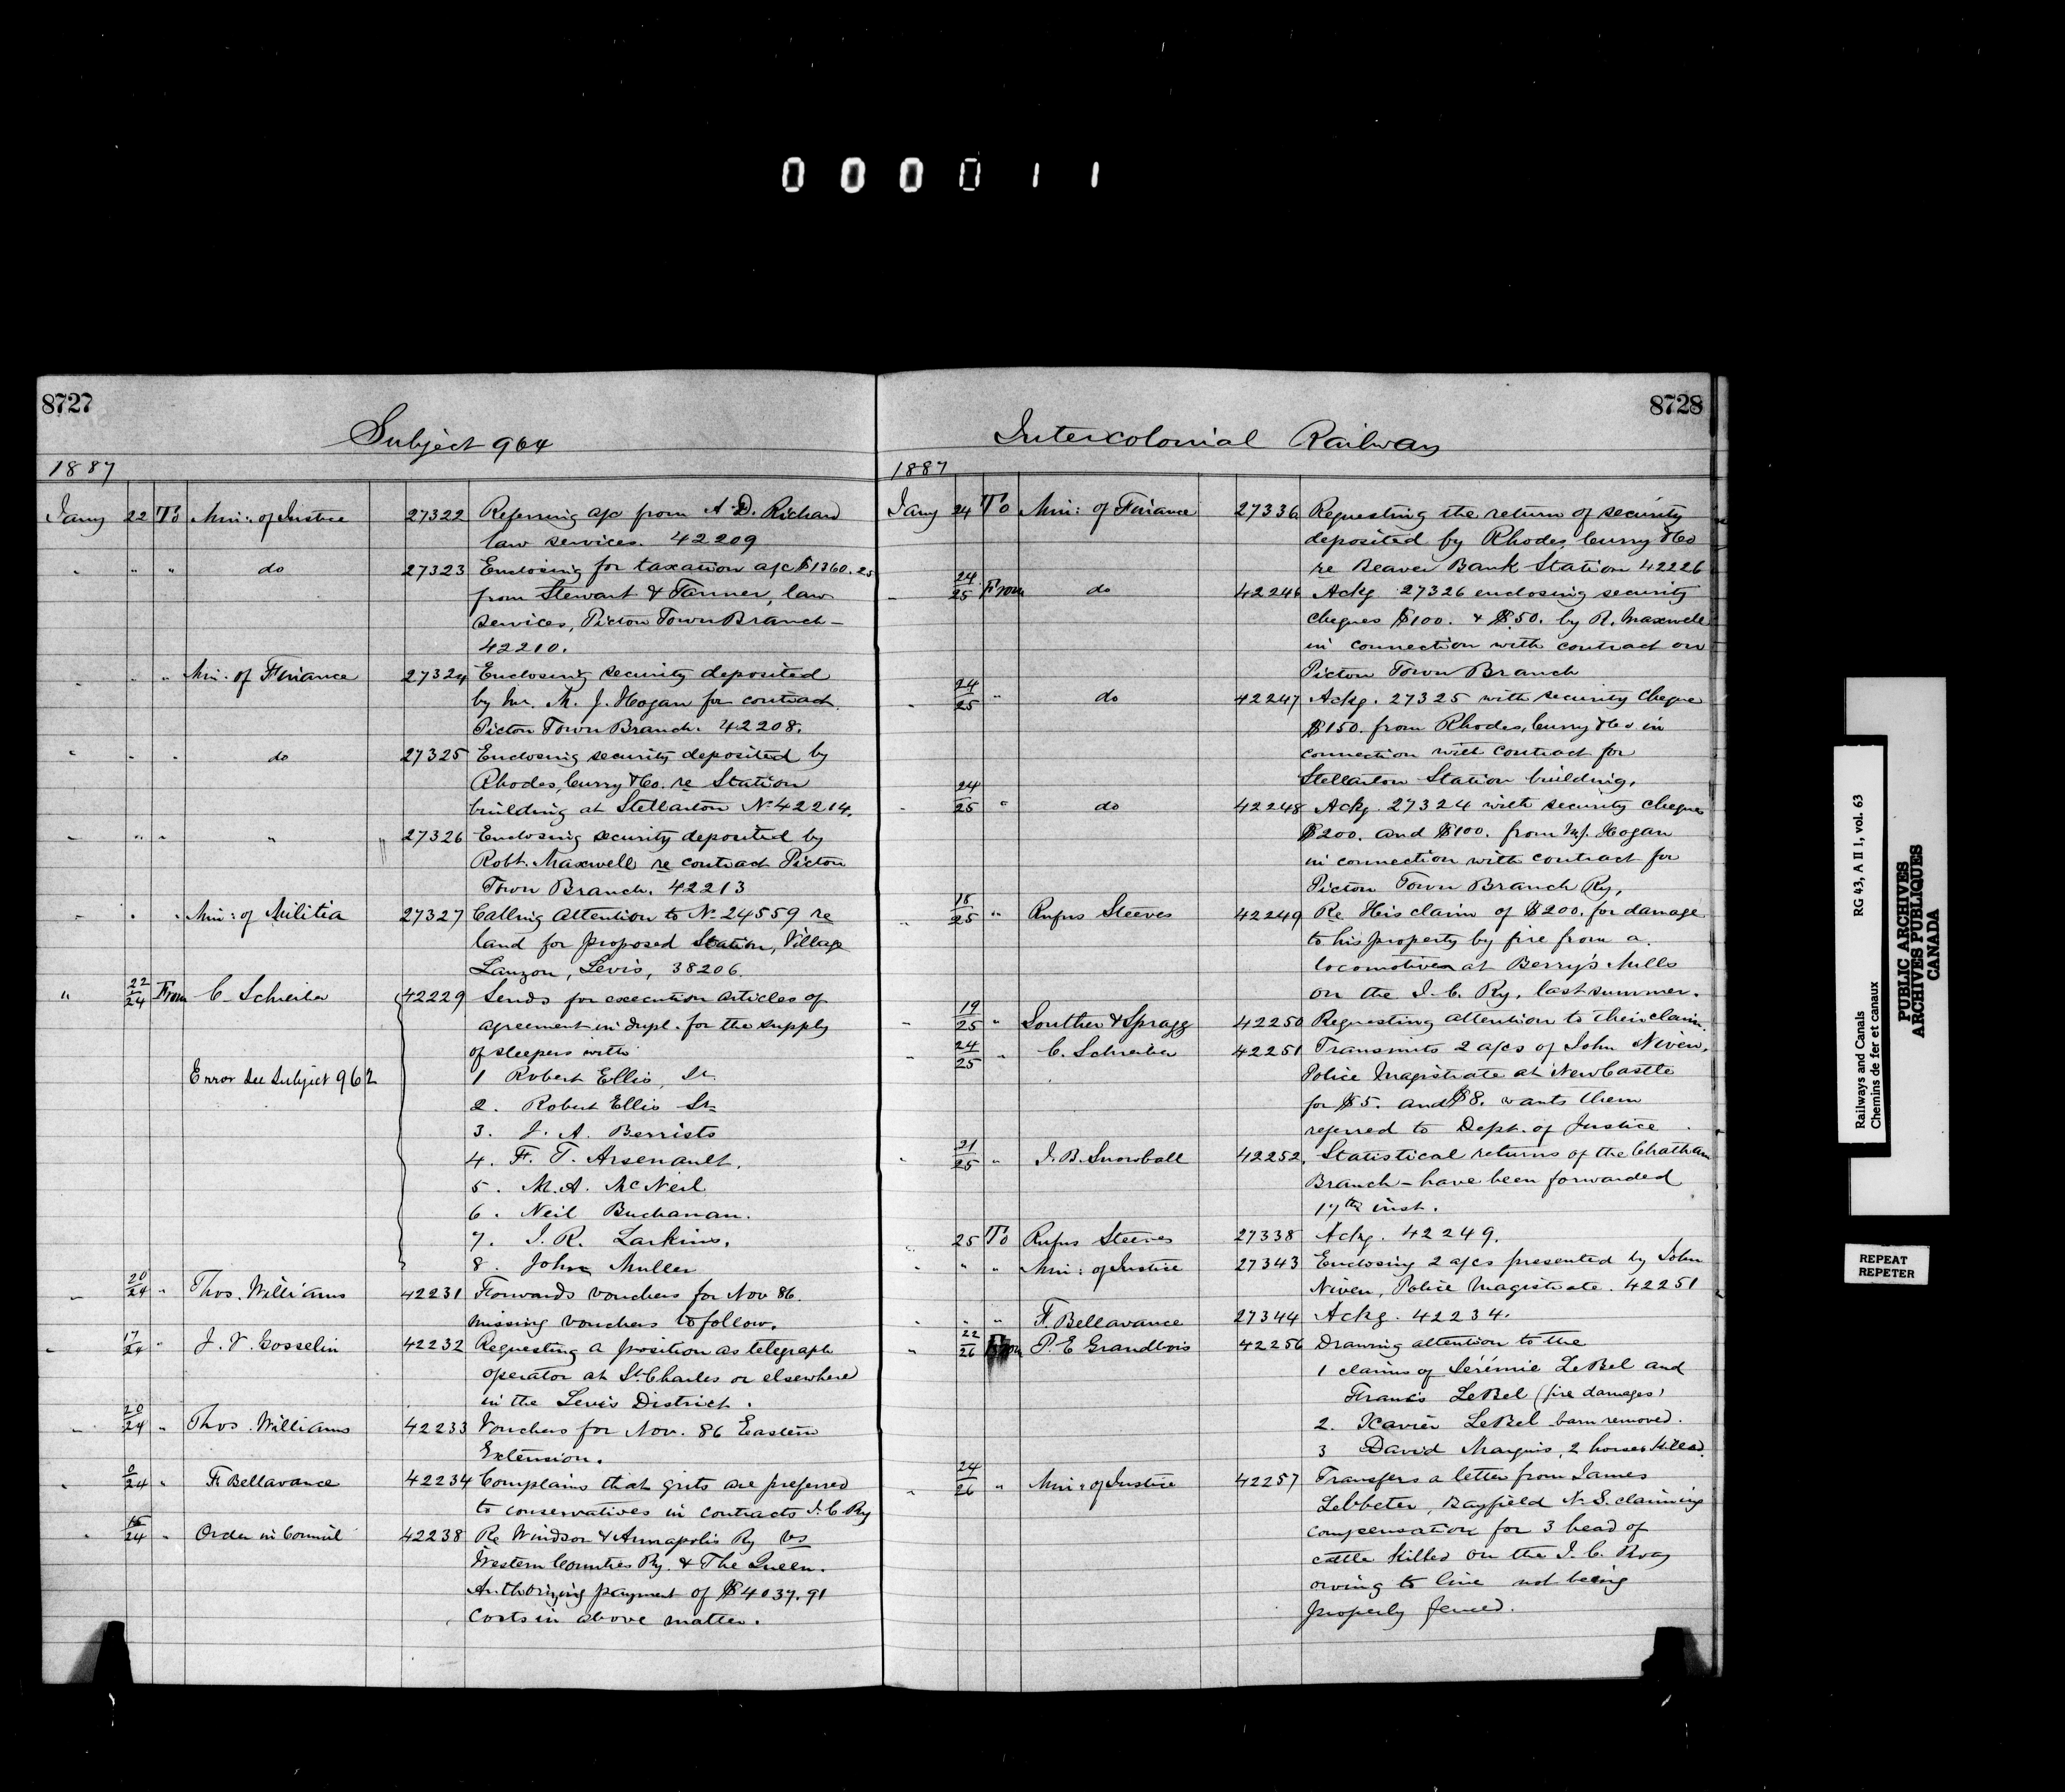 000011
8727
Subject 964
1887
Jany 22 To Min: of Justice 27322 Referring a/c from A. D. Richard
law services. 42209
" " " do 27323 Enclosing for taxation a/c $1360.25
from Stewart & Tanner, law
services, Pictou Town Branch -
42210.
" " " Min: of Finance 27324 Enclosing security deposited
by Mr. M. J. Hogan for contract
Pictou Town Branch. 42208.
" " " do 27325 Enclosing security deposited by
Rhodes, Curry & Co. re Station
building at Stellarton No 42214.
" " " " 27326 Enclosing security deposited by
Robt. Maxwell re contract Pictou
Town Branch. 42213
" " " Min: of Militia 27327 Calling attention to No 24559 re
land for proposed Station, Village
Lauzon, Levis, 38206.
" 22/24 From C. Schreiber 42229 Sends for execution articles of
agreement in dupl. for the supply
of sleepers with
Error See Subject 962 1 Robert Ellis, Jr.
2. Robert Ellis Sr
3. J. A. Berrists
4. F. T. Arsenault.
5. M. A. McNeil
6. Neil Buchanan.
7. J. R. Larkins.
8. John Muller
" 20/24 " Thos. Williams 42231 Forwards vouchers for Nov 86.
missing vouchers to follow.
" 17/24 " J. V. Gosselin 42232 Requesting a position as telegraph
operator at St. Charles or elsewhere
in the Levis District.
" 20/24 " Thos. Williams 42233 Vouchers for Nov. 86 Eastern
Extension.
" /24 " F. Bellavance 42234 Complains that grits are preferred
to conservatives in contracts I. C. Ry
" /24 " Order in Council 42238 Re Windsor & Annapolis Ry vs
Western Counties Ry. & The Queen.
Authorizing payment of $4037.91
costs in above matter.
8728
Intercolonial Railway
1887
Jany 24 To Min: of Finance 27336 Requesting the return of security
deposited by Rhodes, Curry & Co
re Beaver Bank Station 42226
" 24/25 From do 42246 Ackg 27326 enclosing security
cheques $100. & $50. by R. Maxwell
in connection with contract on
Pictou Town Branch
" 24/25 " do 42247 Ackg. 27325 with security cheque
$150. from Rhodes, Curry & Co in
connection with contract for
Stellarton Station building.
" 24/25 " do 42248 Ackg. 27324 with security cheques
$200. and $100. from M. J. Hogan
in connection with contract for
Pictou Town Branch Ry.
" 18/25 " Rufus Steeves 42249 Re His claim of $200. for damage
to his property by fire from a
locomotive at Berry's Mills
on the I. C. Ry. last summer.
" 19/25 " Souther & Spragg 42250 Requesting attention to their claim.
" 24/25 " C. Schreiber 42251 Transmits 2 a/cs of John Niven,
Police Magistrate at NewCastle
for $5. and $8. wants them
referred to Dept. of Justice
" 21/25 " J. B. Snowball 42252. Statistical returns of the Chatham
Branch - have been forwarded
17th inst.
" 25 To Rufus Steeves 27338 Ackg. 42249.
" " " Min: of Justice 27343 Enclosing 2 a/cs presented by John
Niven, Police Magistrate. 42251
" " " F. Bellavance 27344 Ackg. 42234.
" 22/26 From P. E Grandbois 42256 Drawing attention to the
1 claims of Jérémie LeBel and
Francis LeBel (fire damages)
2. Xavier LeBel barn removed.
3 David Marquis, 2 horses killed.
" 24/26 " Min: of Justice 42257 Transfers a letter from James
Lebbeter, Bayfield N.S. claiming
compensation for 3 head of
cattle killed on the I. C. Rway
owing to line not being
properly fenced.
Railways and Canals RG 43, A II 1, vol. 63
Chemins de fer et canaux
PUBLIC ARCHIVES
ARCHIVES PUBLIQUES
CANADA
REPEAT
REPETER